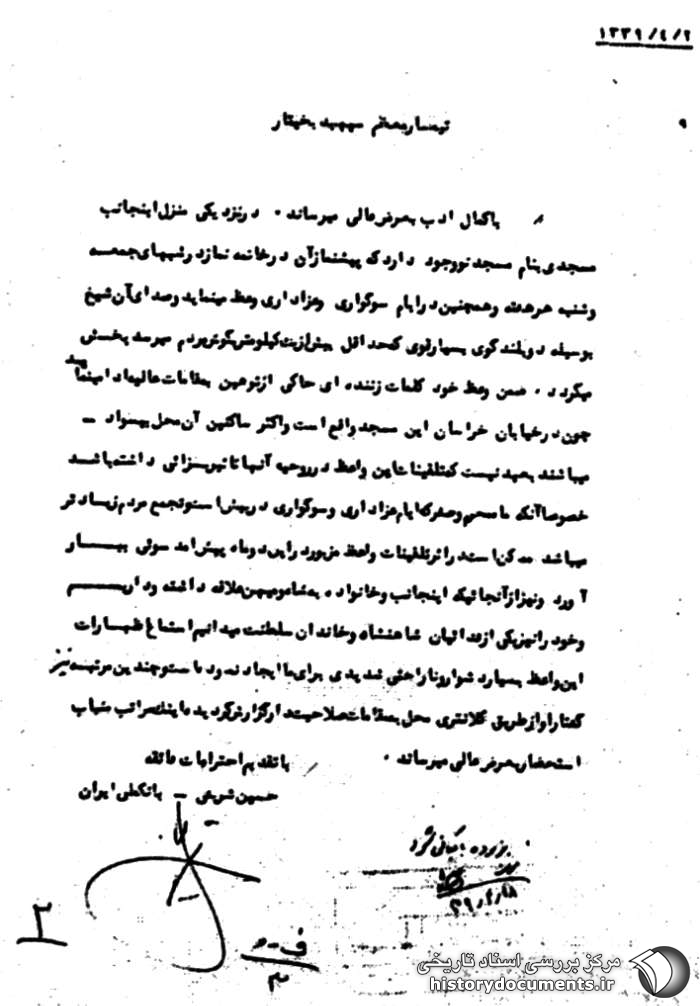 ۱۳۳۹/۴/۲
۹
تیمسار معظم سپهبد بختیار
باکمال ادب بعرض عالی میرساند . درنزدیکی منزل اینجانب
مسجدی بنام مسجد نو وجود دارد که پیشنماز آن درخاتمه نماز درشبهای جمعه
و شنبه هر هفته و همچنین در ایام سوگواری وعزاداری وعظ مینماید وصدای آن شیخ
بوسیله دوبلندگوی بسیار قوی که حداقل بیش از یک کیلومتر بگوش مردم میرسد پخش
میگردد . ضمن وعظ خود کلمات زننده ای حاکی ازتوهین بمقامات عالیه ادا مینماید
چون درخیابان خراسان این مسجد واقع است واکثر ساکنین آن محل بیسواد –
میباشند بعید نیست که تلقینات این واعظ درروحیه آنها تاثیر بسزائی داشته باشد
خصوصا آنکه ماه محرم وصفر که ایام عزاداری وسوگواری درپیش است وتجمع مردم زیادتر
میباشد ممکن است در اثر تلقینات واعظ مزبور در این دو ماه پیش آمد سوئی ببار
آورد ونیز از آنجائیکه اینجانب وخانواده به شاه ومیهن علاقه داشته وداریم
وخود را نیز یکی از فدائیان شاهنشاه وخاندان سلطنت میدانیم استماع اظهارات
این واعظ بسیار دشوار وناراحتی شدیدی برای ما ایجاد نموده است وچندین مرتبه نیز
گفتار او از طریق کلانتری محل بمقامات صلاحیتدار گزارش گردیده اینک مراتب
استحضار بعرض عالی میرساند .
باتقدیم احترامات فائقه
حسین شریفی – بانک ملی ایران
۳۹/۴/۱۸
۲
ف-م
۳
مرکز بررسی اسناد تاریخی
historydocuments.ir